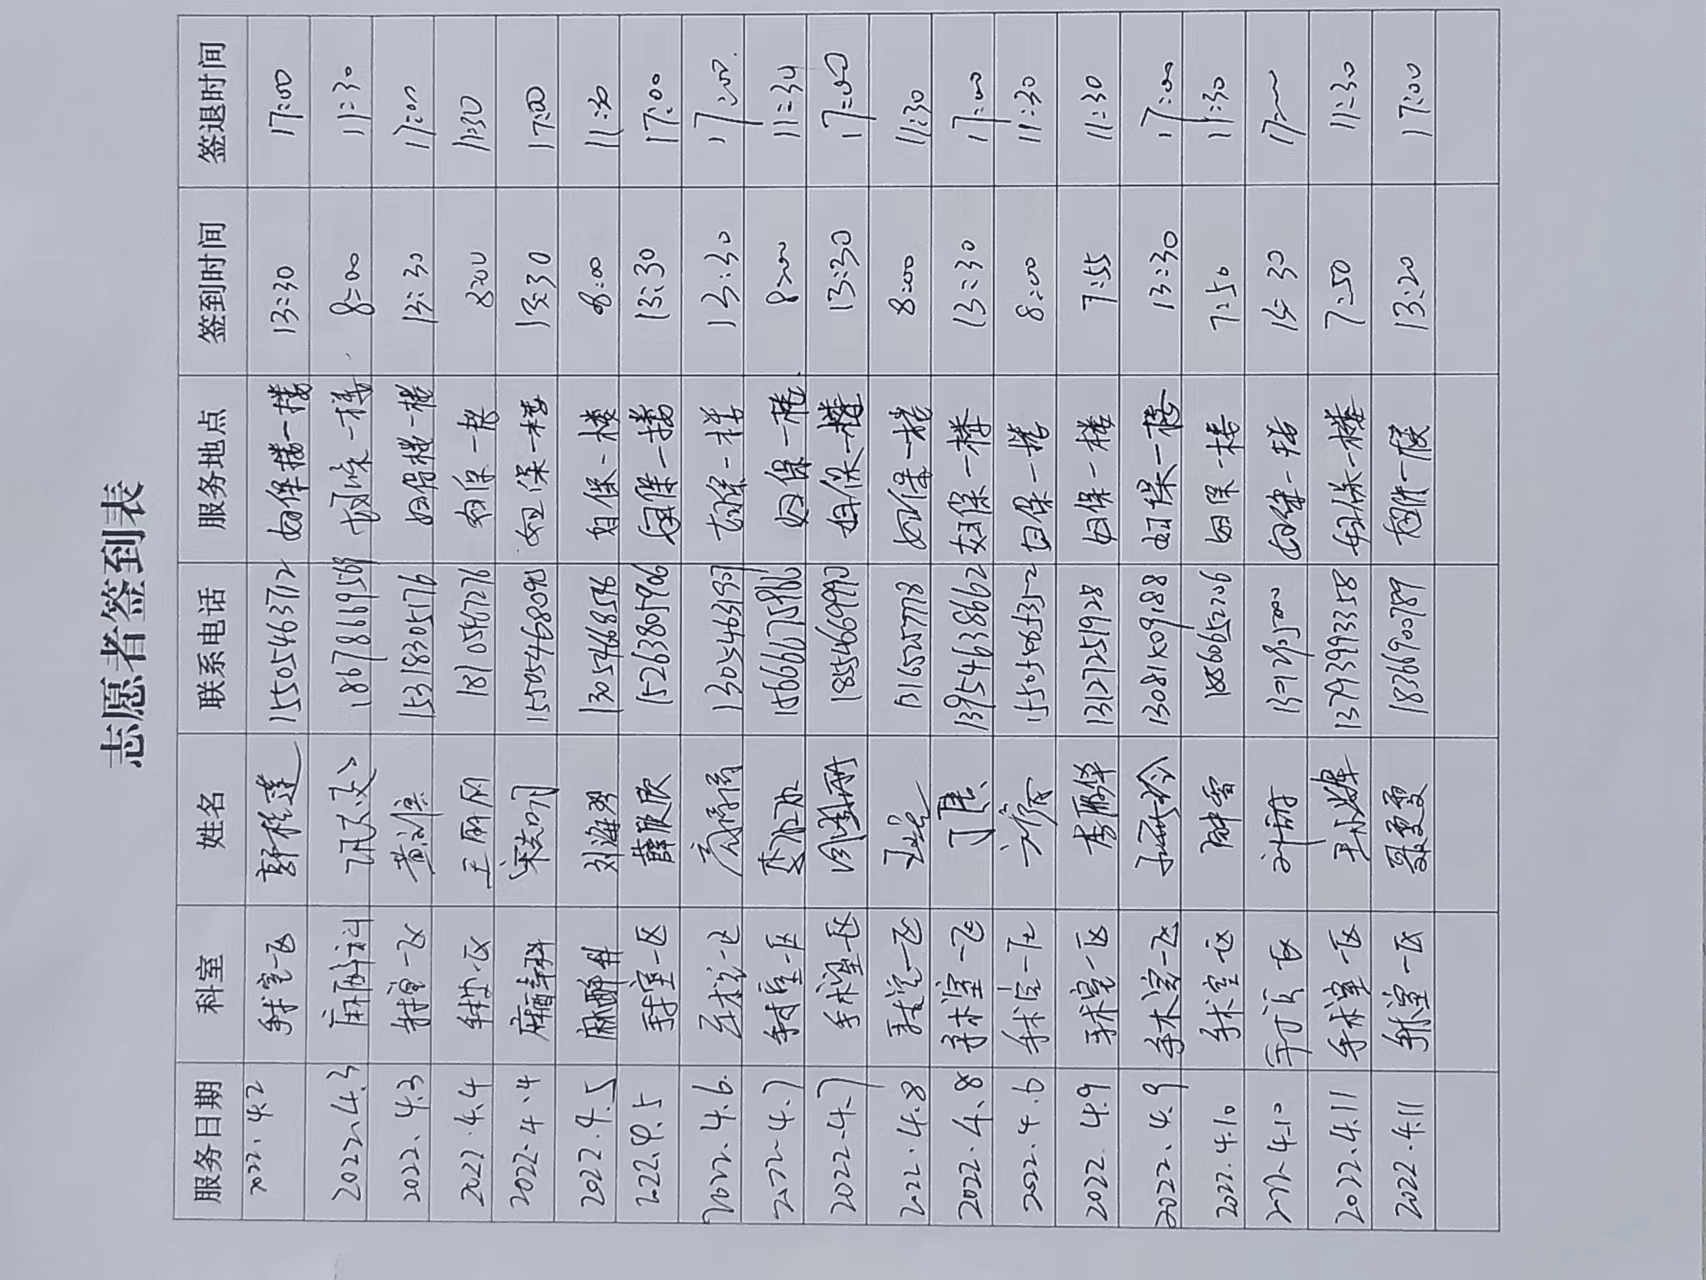 志愿者签到表
服务日期 科室 姓名 联系电话 服务地点 签到时间 签退时间
2022.4.2 手术室一区 15054463712 妇保楼一楼 13:30 17:00
2022.4.3 麻醉科 18678169569 妇保一楼 8:00 11:30
2022.4.3 手术室一区 15318305176 妇保楼一楼 13:30 17:00
2022.4.4 手术室一区 王丽丽 18105467276 妇保一楼 8:00 11:30
2022.4.4 麻醉科 妇保一楼 13:30 17:00
2022.4.5 麻醉科 刘海努 13054668596 妇保一楼 8:00 11:30
2022.4.5 手术室一区 薛欣欣 15263805906 妇保一楼 13:30 17:00
2022.4.6. 手术室一区 妇保一楼 13:30 17:00.
2022.4.7 手术室一区 妇保一楼. 8:00 11:30
2022.4.7 手术室一区 18554669990 妇保一楼 13:30 17:00
2022.4.8 手术室一区 妇保一楼 8:00 11:30
2022.4.8 手术室一区 丁展 13954638662 妇保一楼 13:30 17:00
2022.4.6 手术室一区 妇保一楼 8:00 11:30
2022.4.9 手术室一区 李丽华 13127251928 妇保一楼 7:55 11:30
2022.4.9 手术室一区 妇保一楼 13:30 17:00
2022.4.10 手术室一区 18606652706 妇保一楼 7:50 11:30
2022.4.10 妇保一楼 13:30 17:00
2022.4.11 手术室一区 13793993358 妇保一楼 7:50 11:30
2022.4.11 手术室一区 聂雯雯 18366900789 妇保一楼 13:20 17:00